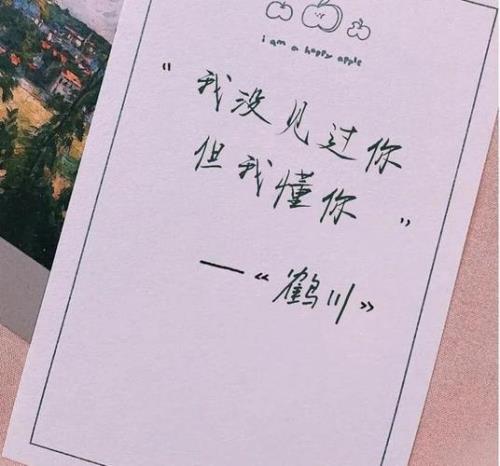 i am a happy apple
“我没见过你
但我懂你”
—“鹤川”